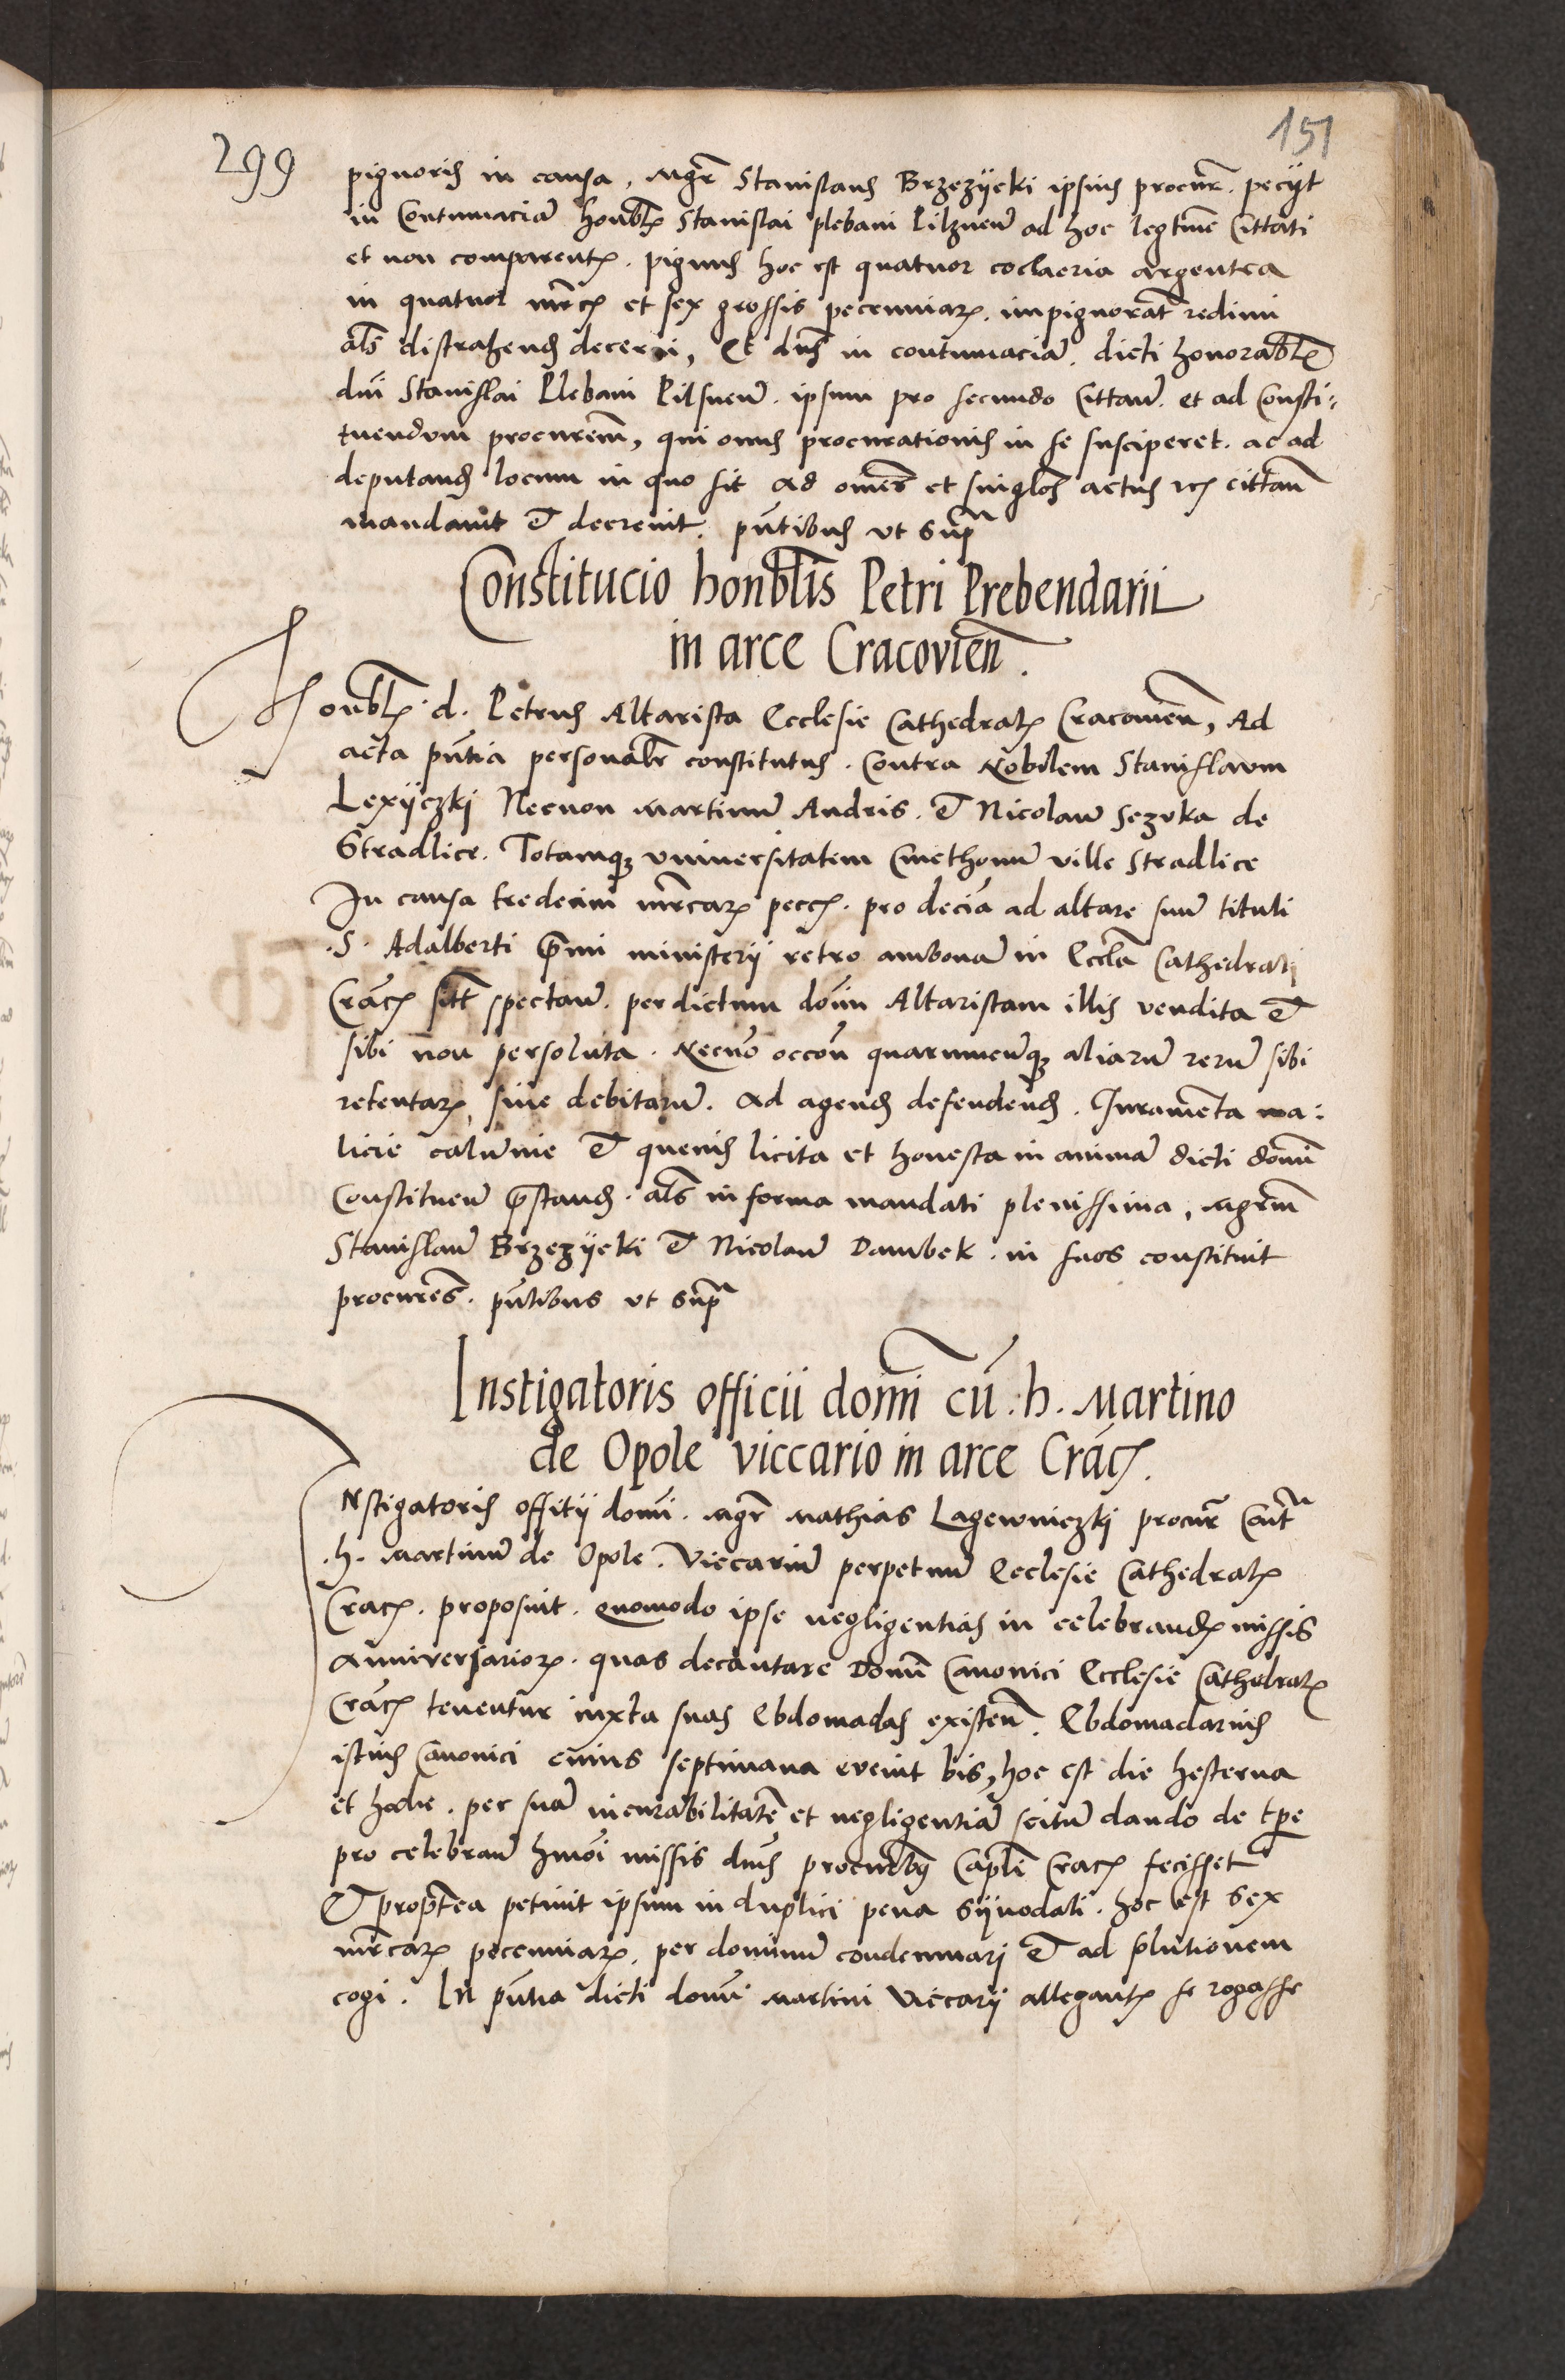 151
299
pignoris in causa, Mgr̄ Stanislaus Brzezijcki ipsius procur̄. pecijt
in Contumaciā honbl̄is Stanislai plebani Pilznen̄ ad hoc legt̄me Cittati
et non comparent̄. pignus hoc est quatuor coclaeria argentea
in quatuor mr̄cis et sex grossis pecenniarꝝ. impignorat̄ redimi
al̄s distrahend̄ decerni, Et dn̄s in contumaciā. dicti honorabl̄is
dn̄i Stanislai Plebani Pilsnen̄. ipsum pro secundo Cittan̄. et ad Consti:
tuendum procurem̄, qui onus procurationis in se susciperet. ac ad
deputand̄ locum in quo sit ad om̄es et singlos̄ actus rc̄ cittan̄
mandauit et decreuit. pn̄tibus vt supa
Constitucio honbl̄is Petri Prebendarii
in arce Cracovien̄.
Honbl̄is. d. Petrus Altarista Ecclesie Cathedral̄ Cracouien̄, Ad
acta pn̄tia personalr̄ constitutus. Contra Nobilem Stanislaum
Lexijczkj Necnon Martinū Andris. et Nicolaū Sezuka de
Stradlice. Totamqꝫ vniuersitatem Cmethonū ville Stradlice
In causa tredecim mr̄carꝝ pecc̄. pro decīa ad altare suū tituli
.S. Adalberti p̄mi ministerij retro ambonā in Eccl̄a Cathedrali
Crac̄ sitt̄ spectan̄. per dictum dom̄ Altaristam illis vendita et
sibi non persoluta. Necnō occōn quarumcunqꝫ aliarū rerū sibi
retentarꝝ siue debitarū. Ad agend̄ defendend̄. Iuramēta ma:
licie calūnie et queuis licita et honesta in animā dicti domi
Constituen̄ p̄stand̄. al̄s in forma mandati plenissima, Mgrm̄
Stanislaū Brzezijcki et Nicolaū Dambek. in suos constituit
procures̄. pn̄tibus vt supa
Instigatoris officii domi cū. h. Martino
de Opole viccario in arce Crac̄.
INstigatoris offitij domi. Mgr̄ Mathias Lagewniczkj procur̄ Cont̄a
.h. Martinū de Opole. Viccariū perpetuū Ecclesie Cathedral̄
Crac̄. proposuit. Quomodo ipse negligentias in celebrand̄ missis
Anniversariorꝝ. quas decantare Domi Canonici Ecclesie Cathedral̄
Crac̄ tenentur iuxta suas Ebdomadas existen̄. Ebdomadarius
istius Canonici cuius septimana euenit bis, hoc est die hesterna
et hodie. per suā incurabilitatē et negligentiā scitū dando de tp̄e
pro celebran̄ hm̄oi missis dn̄is procurībꝰ Capl̄i Crac̄ fecisset
Et propt̄ea petiuit ipsum in duplici pena Sijnodali. hoc est sex
mr̄carꝝ pecenniarꝝ. per dominū condemnari et ad solutionem
cogi. In pn̄tia dicti domi Martini Viccarij allegant̄ se rogasse